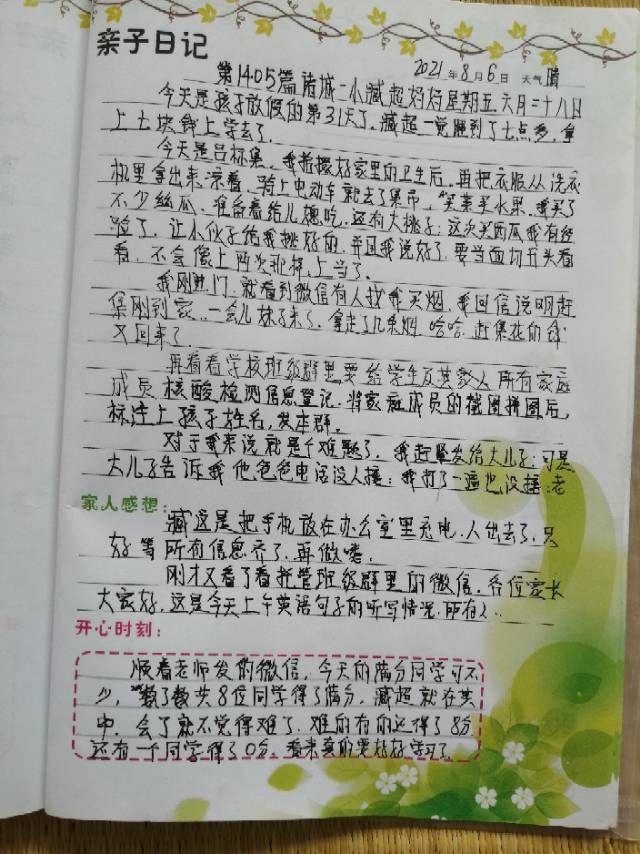 亲子日记
2021年8月6日 天气 晴
第1405篇诸城一小臧超好妈星期五六月二十八日
今天是孩子放假的第31天了。臧超一觉睡到了七点多,拿
上七块钱上学去了。
今天是吕标集,我收拾好家里的卫生后,再把衣服从洗衣
机里拿出来凉着,骑上电动车就去了集市,买菜买水果,我买了
不少丝瓜,准备着给儿想吃,还有大桃子;这次买西瓜我有经
验了,让小伙子给我挑好的,并且我说好了,要当面切开头看
看,不会像上两次那样,上当了。
我刚进门,就看到微信有人找我买烟,我回信说明赶
集刚到家,一会儿妹子来了,拿走了几条烟,哈哈,赶集花的钱
又回来了。
再看看学校班级群里要给学生及其家人所有家庭
成员核酸检测信息登记,将家庭成员的截图拼图后,
标注上孩子姓名,发本群。
对于我来说就是个难题了,我赶紧发给大儿子;可是
大儿子告诉我他爸爸电话没人接;我打了一遍也没接;老
家人感想:
臧这是把手机放在办公室里充电,人出去了,只
好等所有信息齐了,再做喽。
刚才又看了看托管班级群里的微信,各位家长
大家好,这是今天上午英语句子的听写情况,所有人..
开心时刻:
顺着老师发的微信,今天的满分同学可不
少,数了数共8位同学得了满分,臧超就在其
中,会了就不觉得难了,难的有的还得了8分
还有一个同学得了0分,看来真的要好好学习了